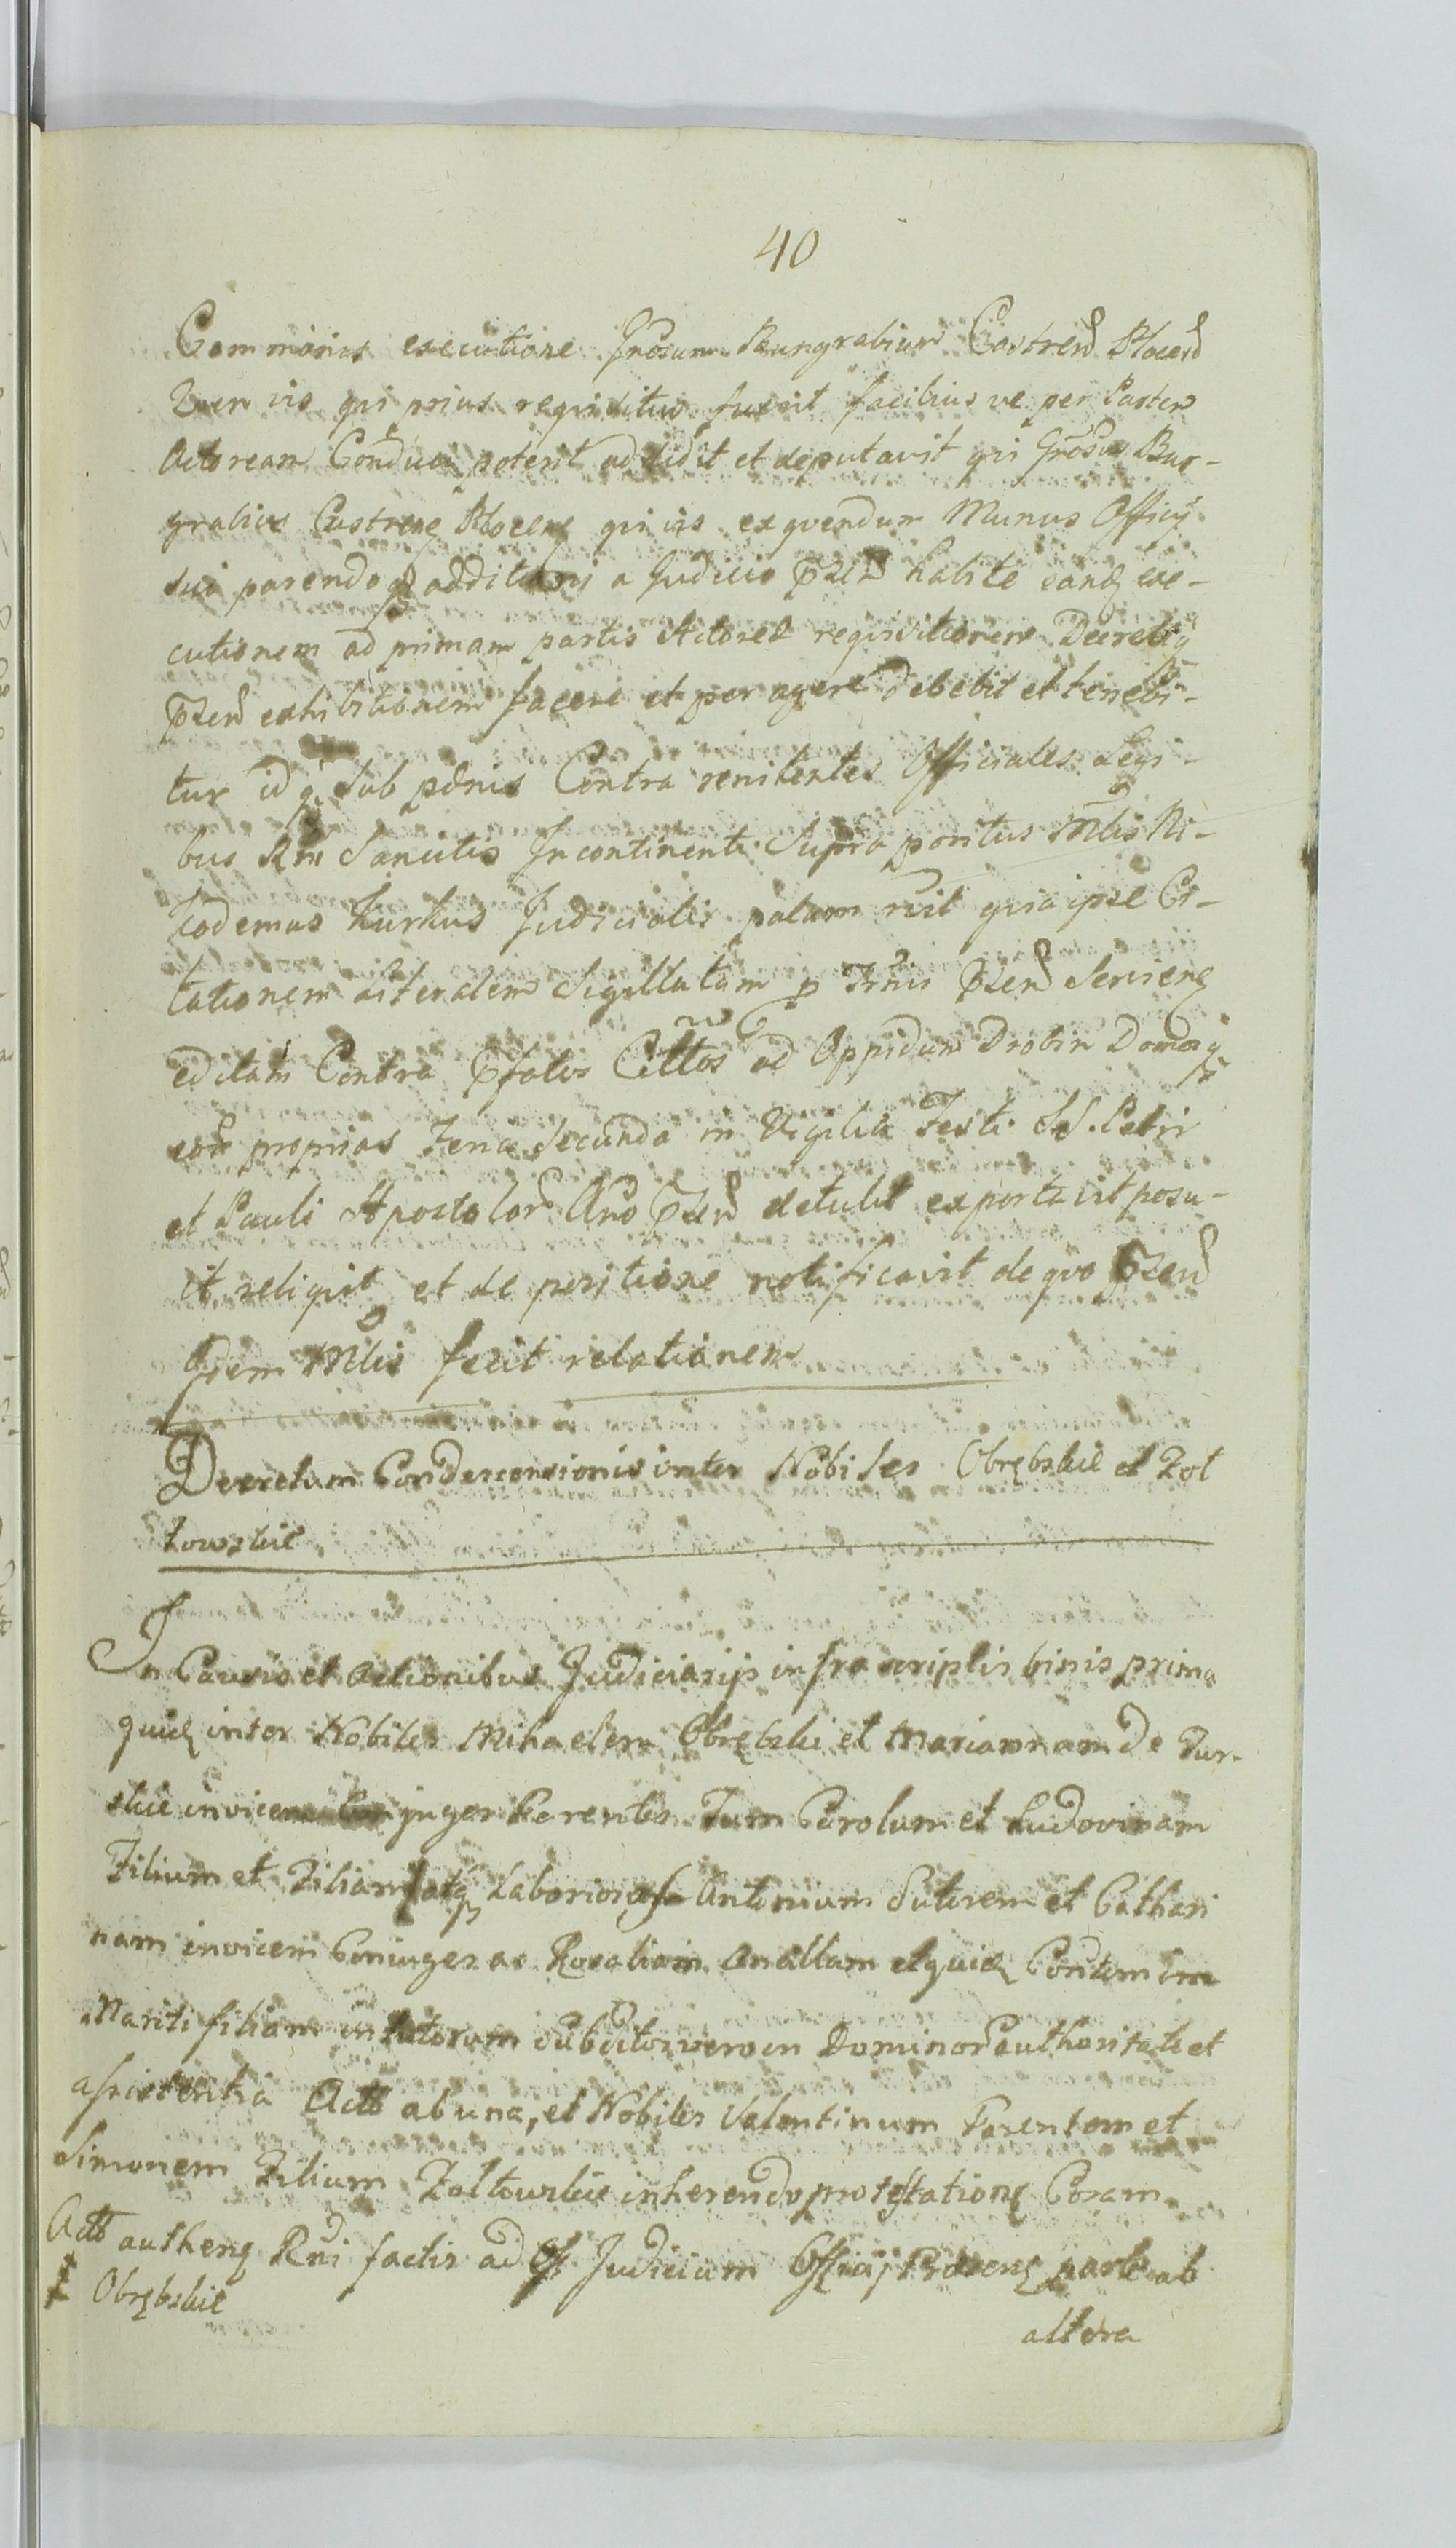 40
Commissis executione Grosum Burgrabium Castren Plocen
Quem vis qui prius requisitus fuerit facilius ve per Partem
Actoream Conduci poterit addidit et deputavit qui Grosus Bur-
grabius Castren Plocen qui vis exqvendum Munus Officij
sui parendoq additioni a Judicio pzen habite eand exe-
cutionem ad primam partis Actoreæ requisitionem Decretiq
pzen exhibitionem facere et per agere debebit et tenebi-
tur id q sub pænis Contra renitentes Officiales Legi-
bus Rni Sancitis Incontinenti Supra poritus Mlis Ni-
codemus Kurkus Judicialis palam rvit quia ipse Ci-
tationem Literalem Sigillatam p Trnii pzen Servien
editam Contra pfatos Cittos ad Oppidum Drobin Domosq
eor proprias Feria Secunda in Vigilia Festi SS. Petri
et Pauli Apostolor Ano pzen detulit exportavit posu-
it reliquit et de positione notificavit de quo pzen
Idem Mlis fecit relationem
Decretum Condescensionis inter Nobiles Obrębskie et Żół
towskie
In Causis et Actionibus Judiciarijs infra scriptis binis prima
quid inter Nobiles Mihaelem Obrębski et Mariannam De Tur-
skie invicem Conjuges Parentes Tum Carolum et Ludovinam
Filium et Filiam atq Laboriosos Antonium Sutorem et Cathari
nam invicem Coniuges ac Rosaliam Anallam
Mariti filiam subditos vero in Dominor authoritate et
assistentia Actt ab una, et Nobiles Valentinum Parentem et
Simonem Filium Żołtowskie inherendo protestation Coram
Actt authen Rni factis ad Judicium Officij Præsens parte ab
Obrębskie
altera